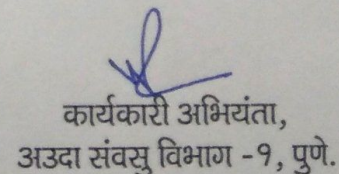 कार्यकारी अभियंता,
अउदा संवसु विभाग -१, पुणे.